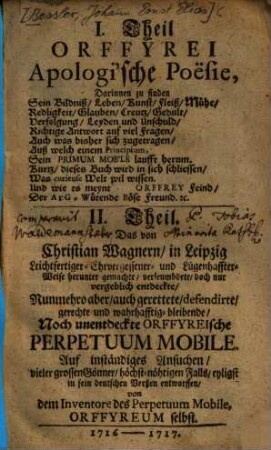 [Bessler, Johann Ernst Elias]
I. Theil
ORFFYREI
Apologi'sche Poësie,
Darinnen zu finden
Sein Bildniß/ Leben/ Kunst/ Fleiß/ Mühe/
Redigkeit/ Glauben/ Creutz/ Gedult/
Verfolgung/ Leyden und Unschuld/
Richtige Antwort auf viel Fragen/
Auch was bisher sich zugetragen/
Auß welch einem Principium,
Sein PRIMUM MOBILE lauffe herum.
Kurtz/ dieses Buch wird in sich schliesen/
Was curieuse Welt wil wissen.
Und wie es meyne ORFFREY Feind/
Der ArG, Wütende böse Freund. &c.
II. Theil.
Das von
Christian Wagnern/ in Leipzig
Leichtfertiger- Ehrvergessener- und Lügenhaffter-
Weise herunter gemachte/ verleumbdete/ doch nur
vergeblich entdeckte/
Nunmehro aber/ auch gerettete/ defendirte/
gerechte und wahrhafftig-bleibende/
Noch unentdeckte ORFFYREische
PERPETUUM MOBILE.
Auf inständiges Ansuchen/
vieler grossen Gönner/ höchst-nöthigen Falls/ eyligst
in sein deutschen Verßen entworffen/
von
dem Inventore des Perpetuum Mobile,
ORFFYREUM selbst.
1716—1717.